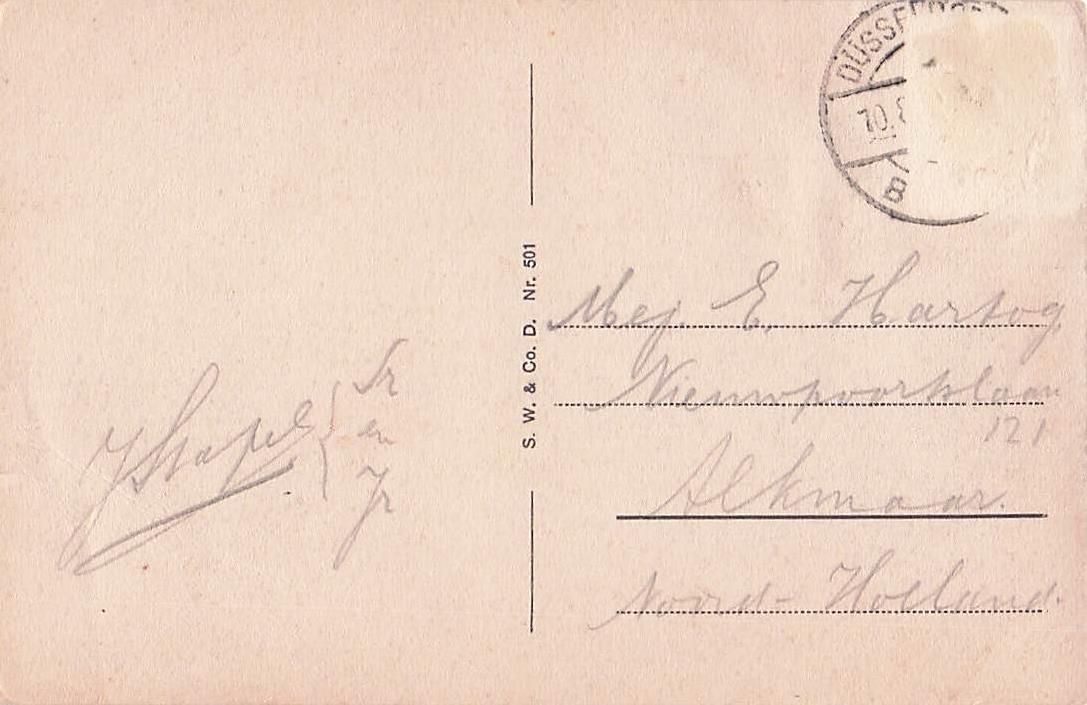 DÜSSELDORF
10.8
B
S. W. & Co. D. Nr. 501
Mej. E. Hartog
Nieuwpoortslaan
121
Alkmaar.
Noord-Holland.
JStapel { Sr
en
Jr